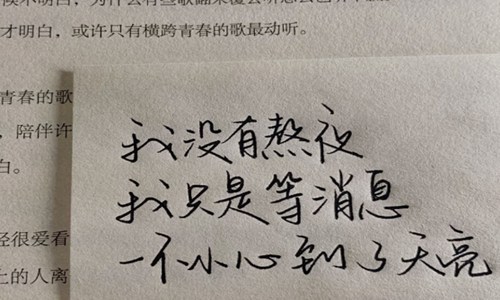 才明白，或许只有横跨青春的歌最动听。
青春的歌
，陪伴许
白。
我没有熬夜
我只是等消息
一不小心到了天亮
经很爱看
上的人离